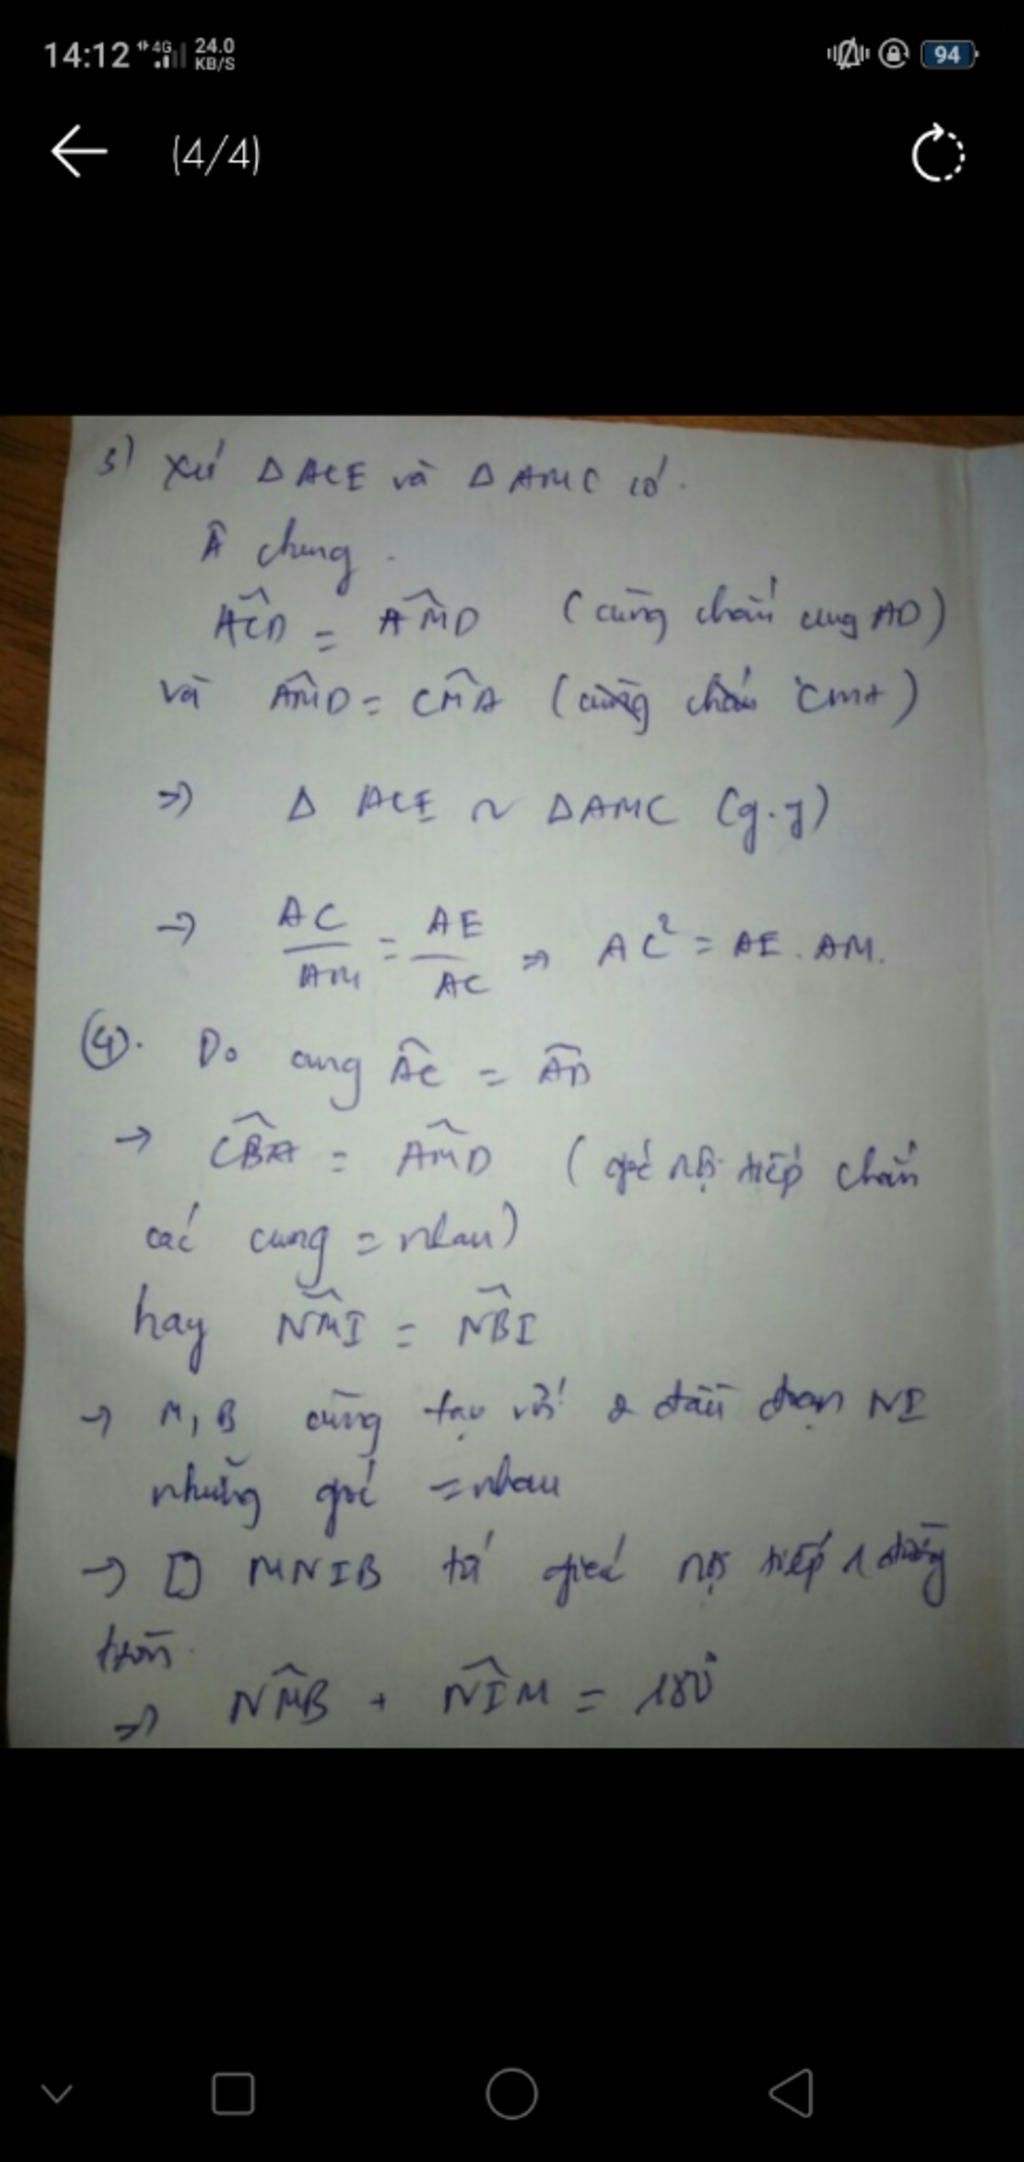 14:12 4G 24.0 KB/S 94
(4/4)
3) Xét Δ ACE và Δ AMC có.
Â chung.
ACD = AMD (cùng chắn cung AD)
và AMD = CMA (cùng chắn CMA)
=> Δ ACE ~ ΔAMC (g.g)
-> AC/AM = AE/AC => AC² = AE.AM.
(4). Do cung AC = AD
-> CBA = AMD (góc nội tiếp chắn
các cung = nhau)
hay NMI = NBI
-> M, B cùng tạo với 2 đầu đoạn NI
những góc = nhau
-> □ MNIB tứ giác nội tiếp 1 đường
tròn.
=> NMB + NIM = 180°